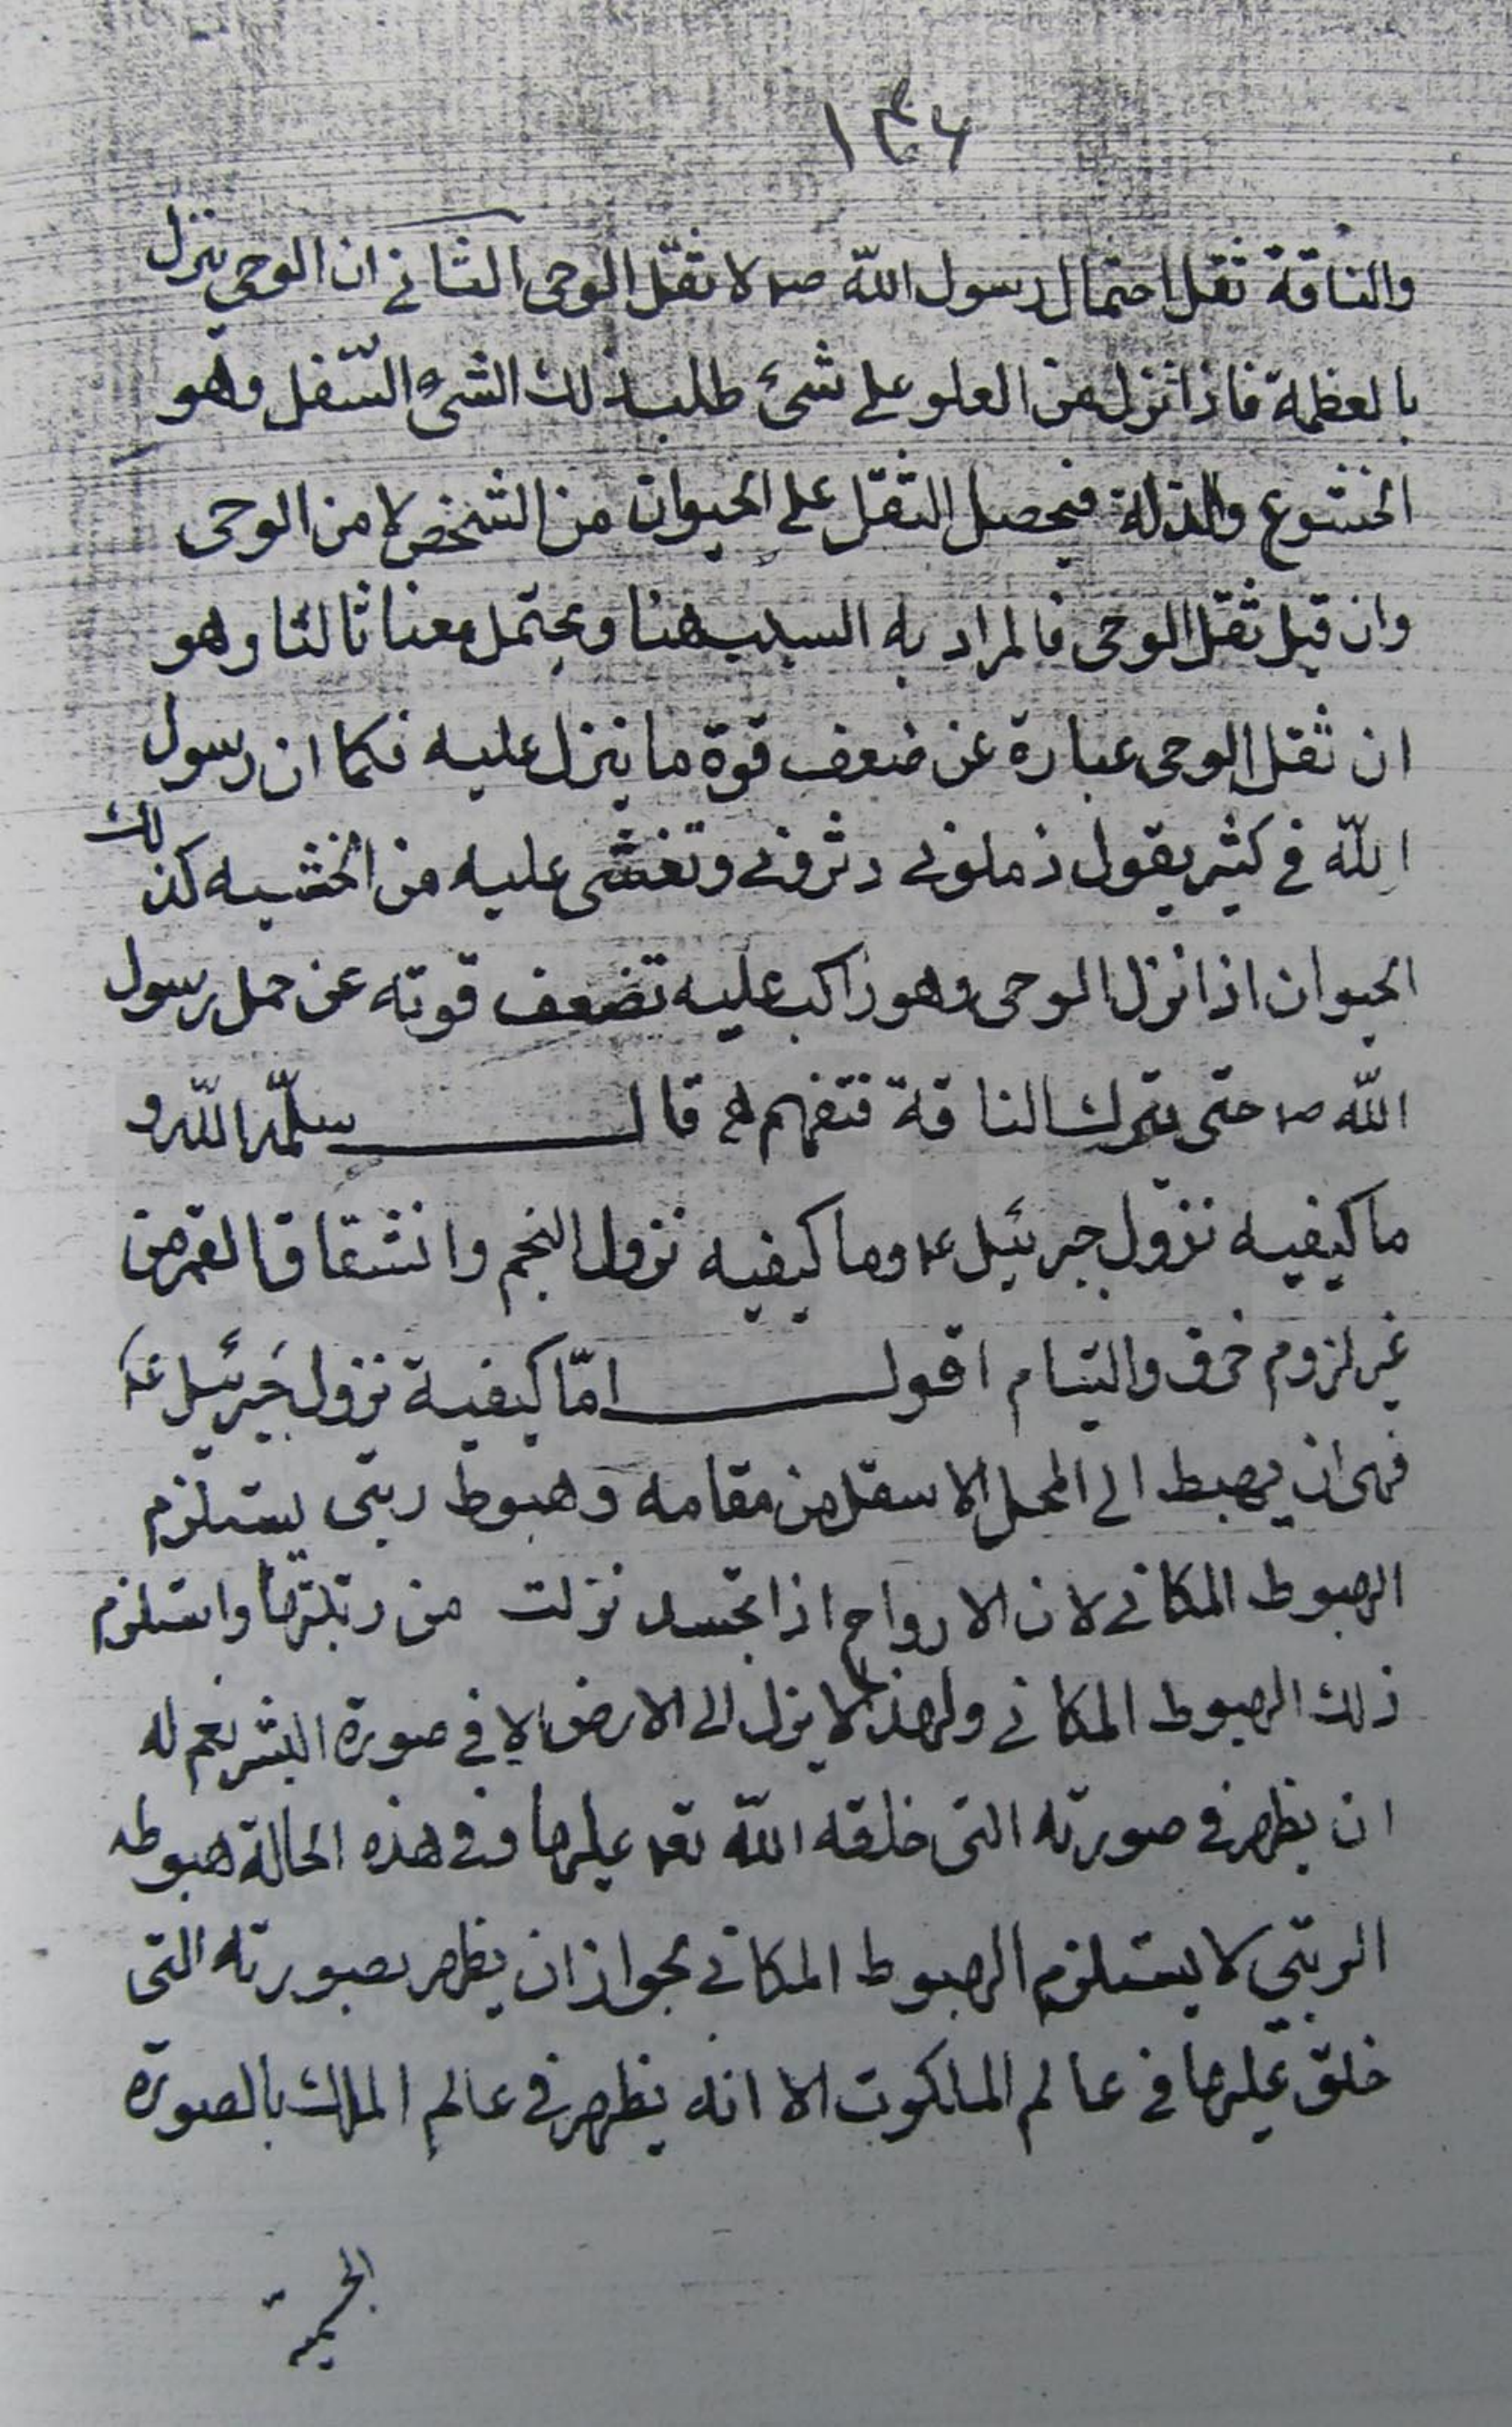 ١٣٤
والناقة ثقل احتمال رسول اللّه صم لا ثقل الوحى الثانى ان الوحى ينزل
بالعظمة فاذا نزل من العلو على شىء طلب ذلك الشىء السّفل وهو
الخشوع والذلة فيحصل الثقل على الحيوان من الشخص لا من الوحى
وان قيل ثقل الوحى فالمراد به السبب هنا ويحتمل معنا ثالثا وهو
ان ثقل الوحى عبارة عن ضعف قوة ما ينزل عليه فكما ان رسول
اللّه فى كثير يقول زملونى دثرونى وتغشى عليه من الخشيه كذلك
الحيوان اذا نزل الوحى وهو راكب عليه تضعف قوته عن حمل رسول
اللّه صم حتى تبرك الناقة فتفهم قال سلّمه اللّه و
ما كيفيه نزول جبرئيل عم وما كيفيه نزول النجم وانشقاق القمر من
غير لزوم خرق والتيام اقول امّا كيفية نزول جَبرئيل عم
فهى ان يهبط الى المحل الاسفل من مقامه وهبوط رتبى يستلزم
الهبوط المكانى لان الارواح اذا تجسد نزلت من رتبتها واستلزم
ذلك الهبوط المكانى ولهذا لا ينزل الى الارض الا فى صورة البشر نعم له
ان يظهر فى صورته التى خلقه اللّه تعه عليها وفى هذه الحالة هبوطه
الرتبى لا يستلزم الهبوط المكانى لجواز ان يظهر بصورته التى
خلق عليها فى عالم الملكوت الا انه يظهر فى عالم الملك بالصورة